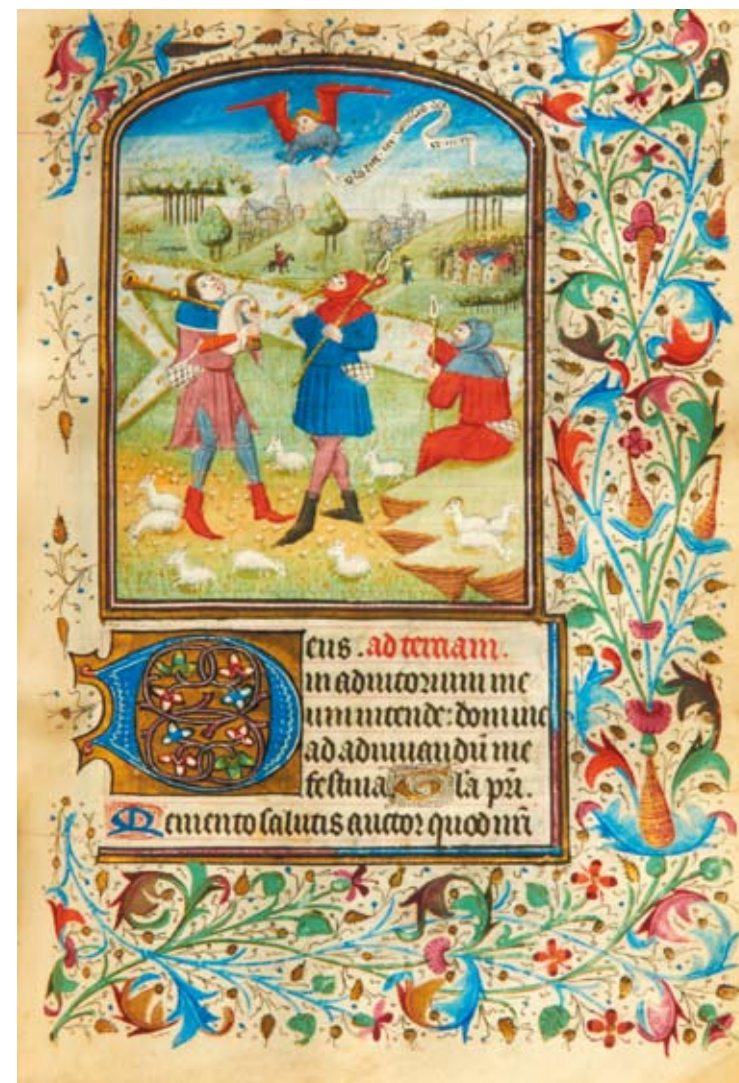 Deus. ad terciam.
in adiutorium me
um intende: domine
ad adiuuandũ me
festina Gl̃a pr̃i.
Memento salutis auctor quod nr̃i